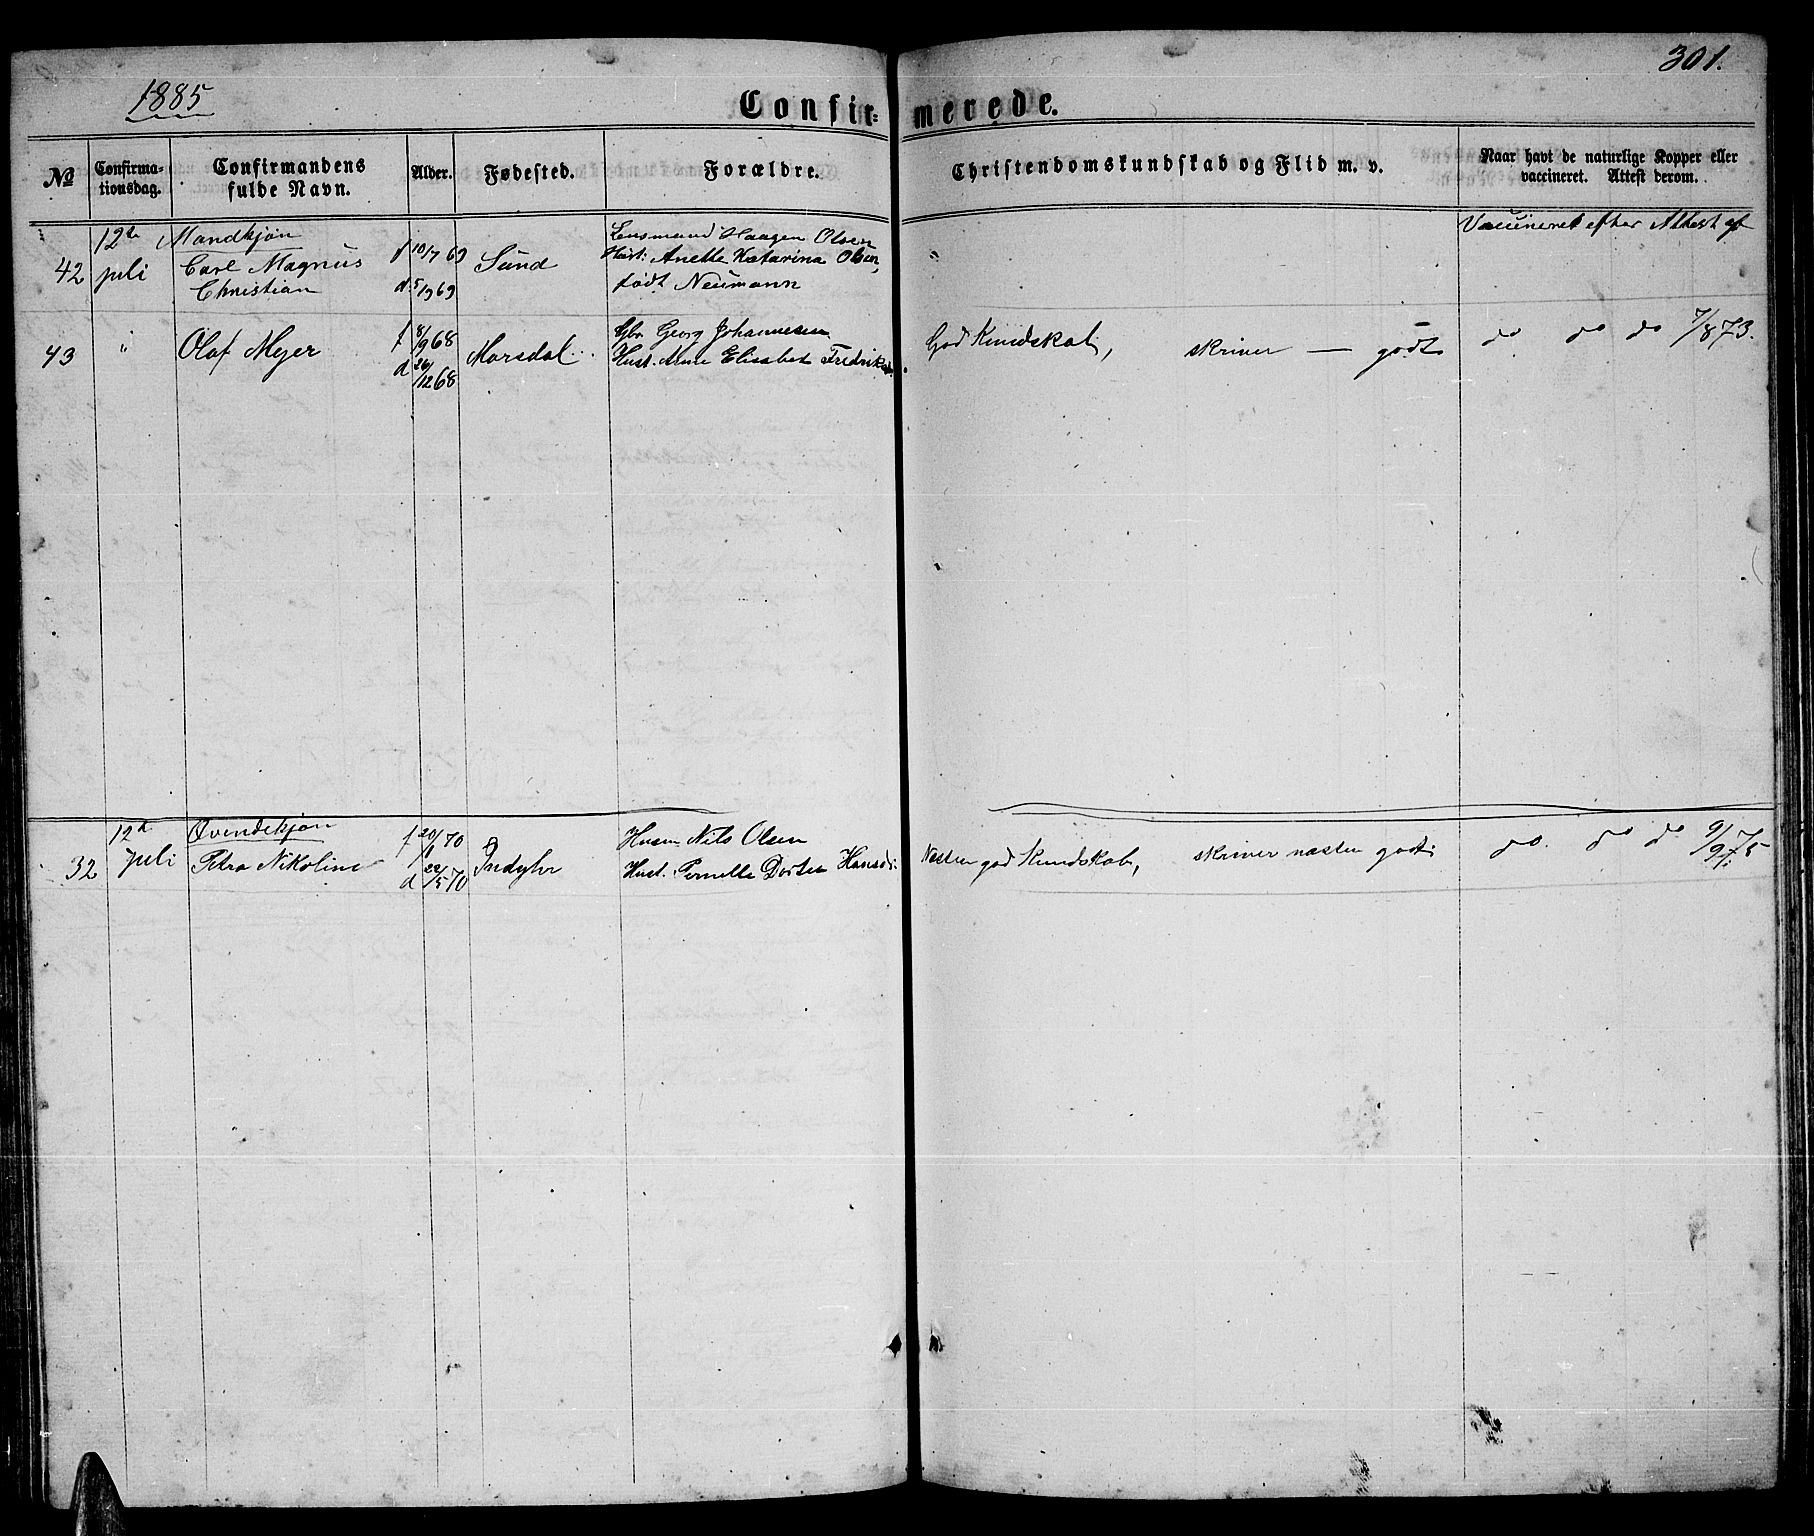 1885
301.
Confir=
merede.
No
Confirma-
tionsdag.
Confirmandens
fulde Navn.
Alder.
Fødested.
Forældre.
Christendomskundskab og Flid m. v.
Naar havt de naturlige Kopper eller
vaccineret. Attest derom.
12te Mandkjøn
42 juli Carl Magnus
Christian
f 10/7 69
d 5/9 69
Sund
Lensmand Haagen Olsen
Hust. Anette Katarina Olsen,
født Neumann
Vaccineret efter Attest af
43 " Olaf Mejer
f 8/9 68
d 26/12 68
Morsdal
Gbr Georg Johannesen
Hust. Anne Elisabet Fredriksd.
God Kundskab, skriver — godt
do do do 7/8 73.
12te Qvindekjøn
32 juli Petra Nikoline
f 20/1 70
d 22/5 70
Indyhr
Husm Nils Olsen
Hust. Pernelle Dortea Hansd.
Næsten god Kundskab, skriver næsten godt
do. do do 9/9 75